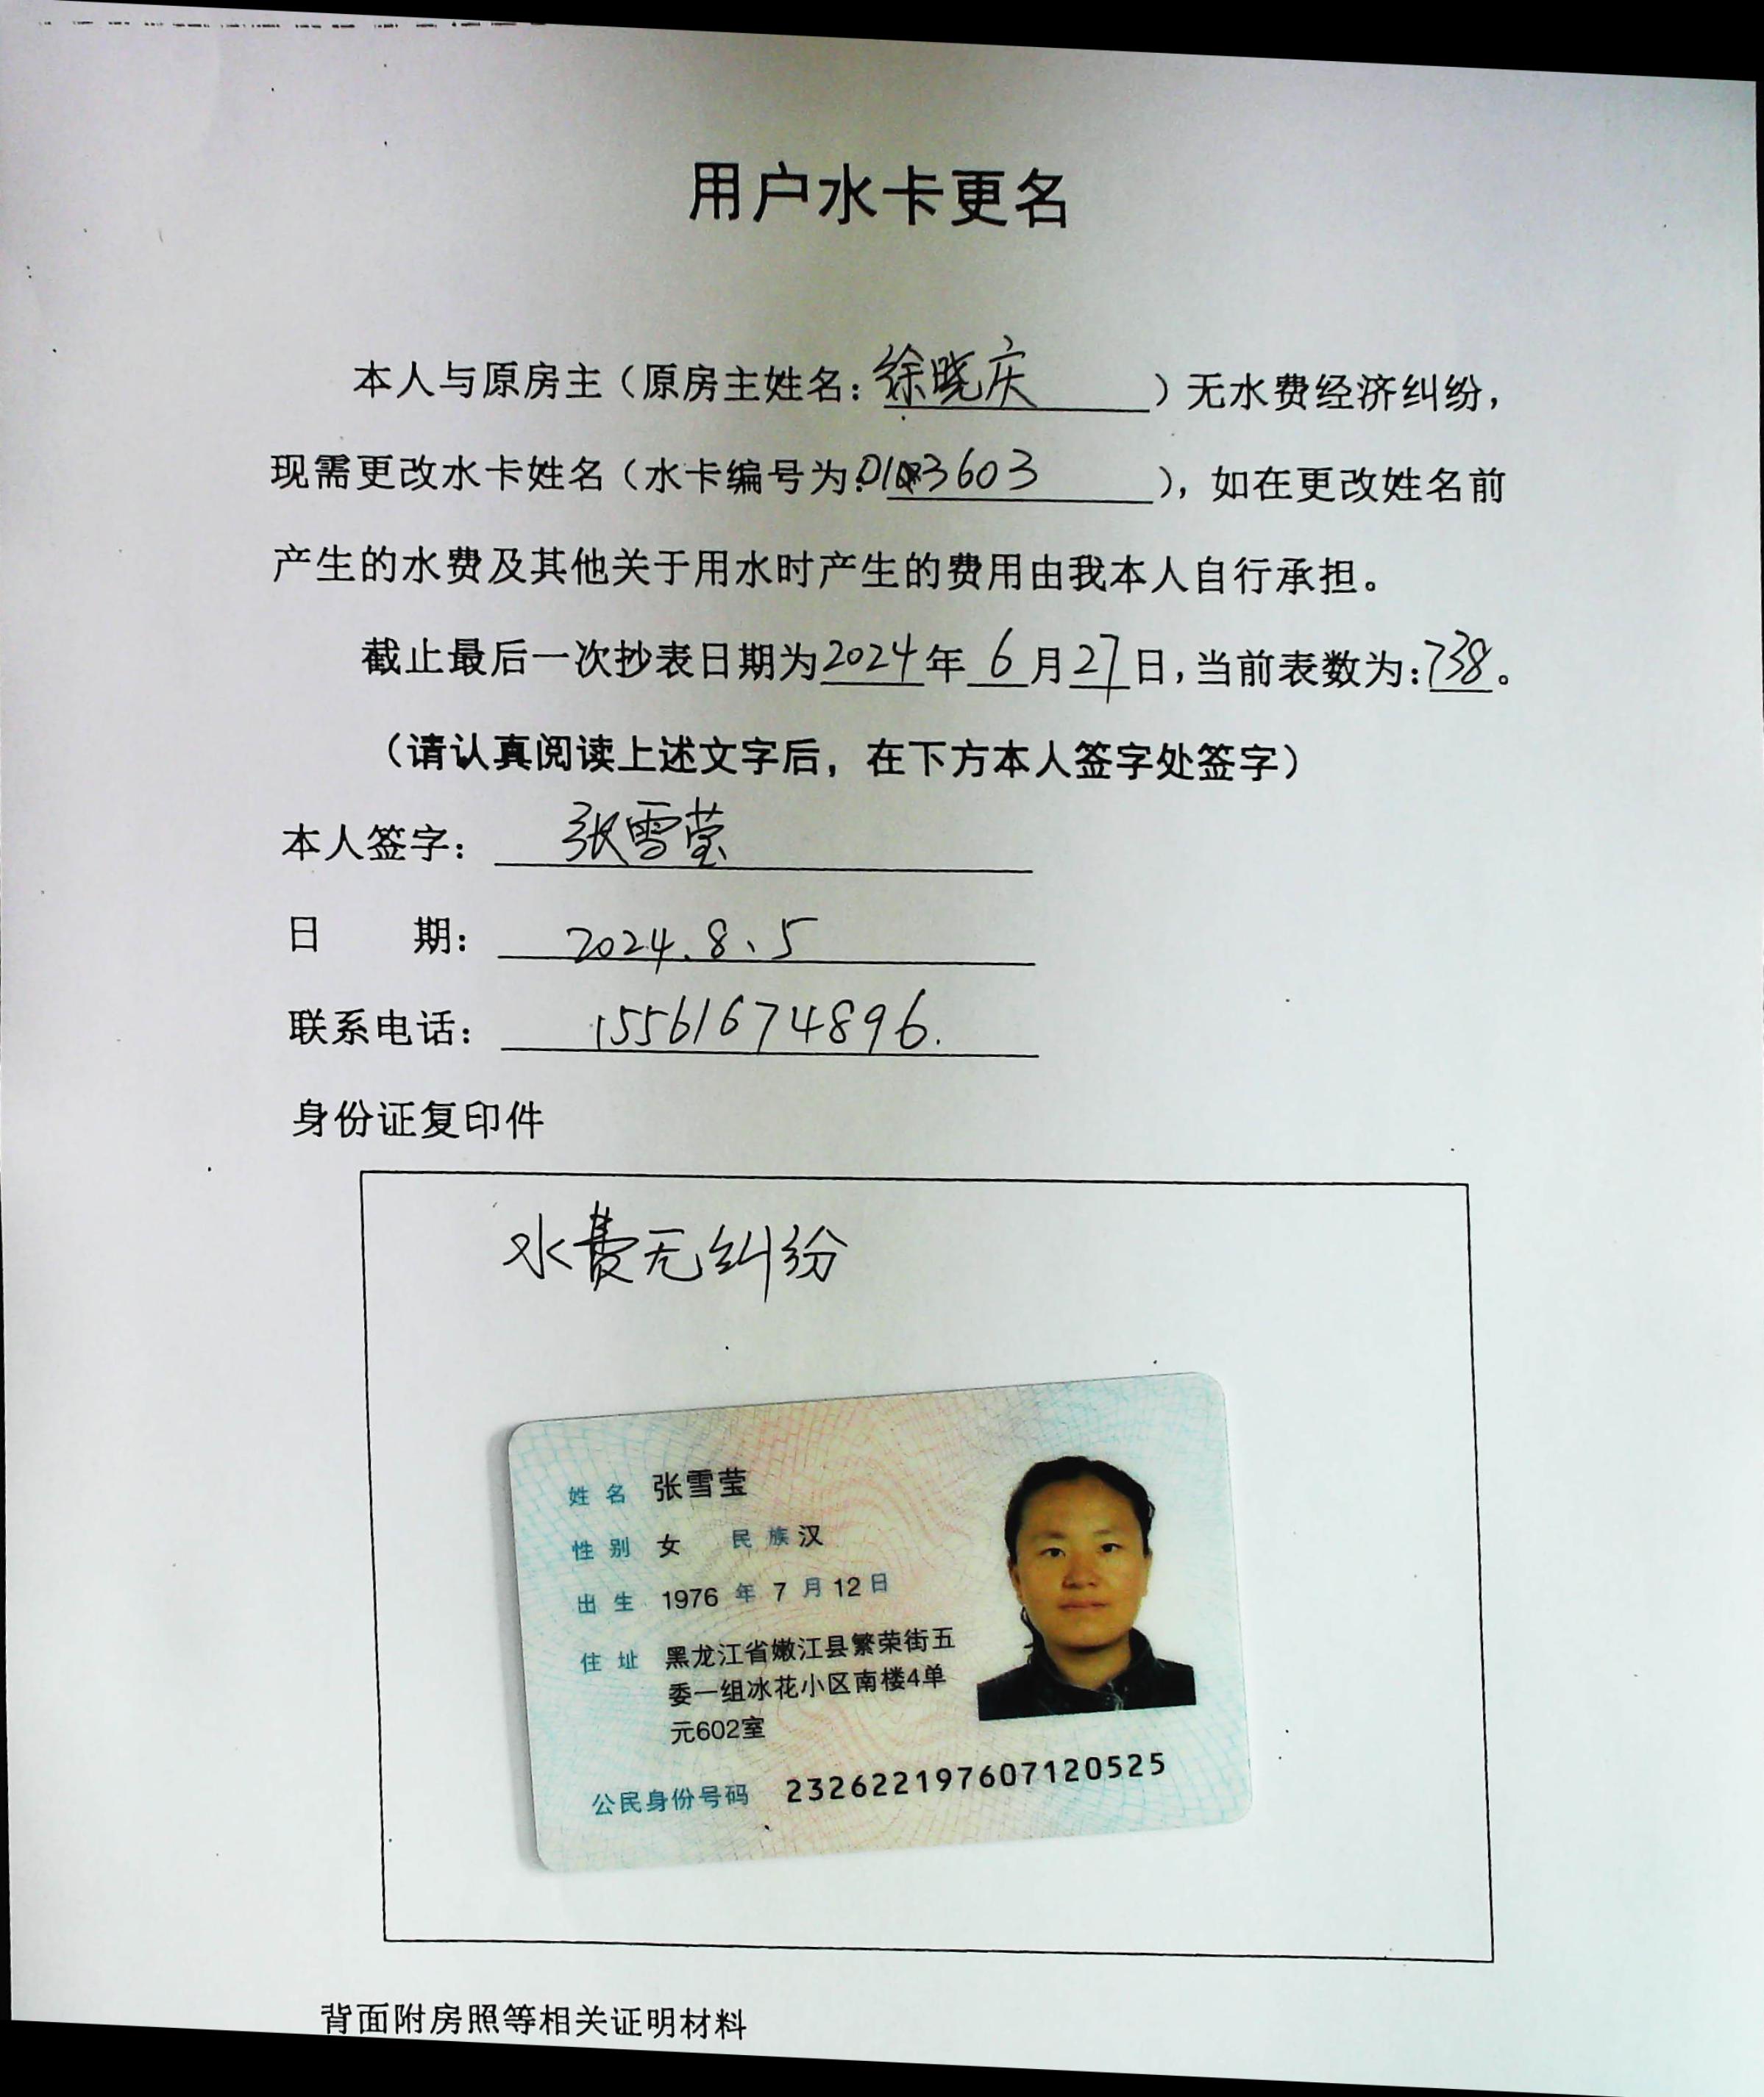 用户水卡更名
本人与原房主（原房主姓名：徐晓庆）无水费经济纠纷，
现需更改水卡姓名（水卡编号为：），如在更改姓名前
产生的水费及其他关于用水时产生的费用由我本人自行承担。
截止最后一次抄表日期为2024年6月27日，当前表数为：738。
（请认真阅读上述文字后，在下方本人签字处签字）
本人签字：张雪莹
日期：2024.8、5
联系电话：15561674896.
身份证复印件
水费无纠纷
姓名 张雪莹
性别 女 民族 汉
出生 1976 年 7 月 12 日
住址 黑龙江省嫩江县繁荣街五
委一组冰花小区南楼4单
元602室
公民身份号码 232622197607120525
背面附房照等相关证明材料